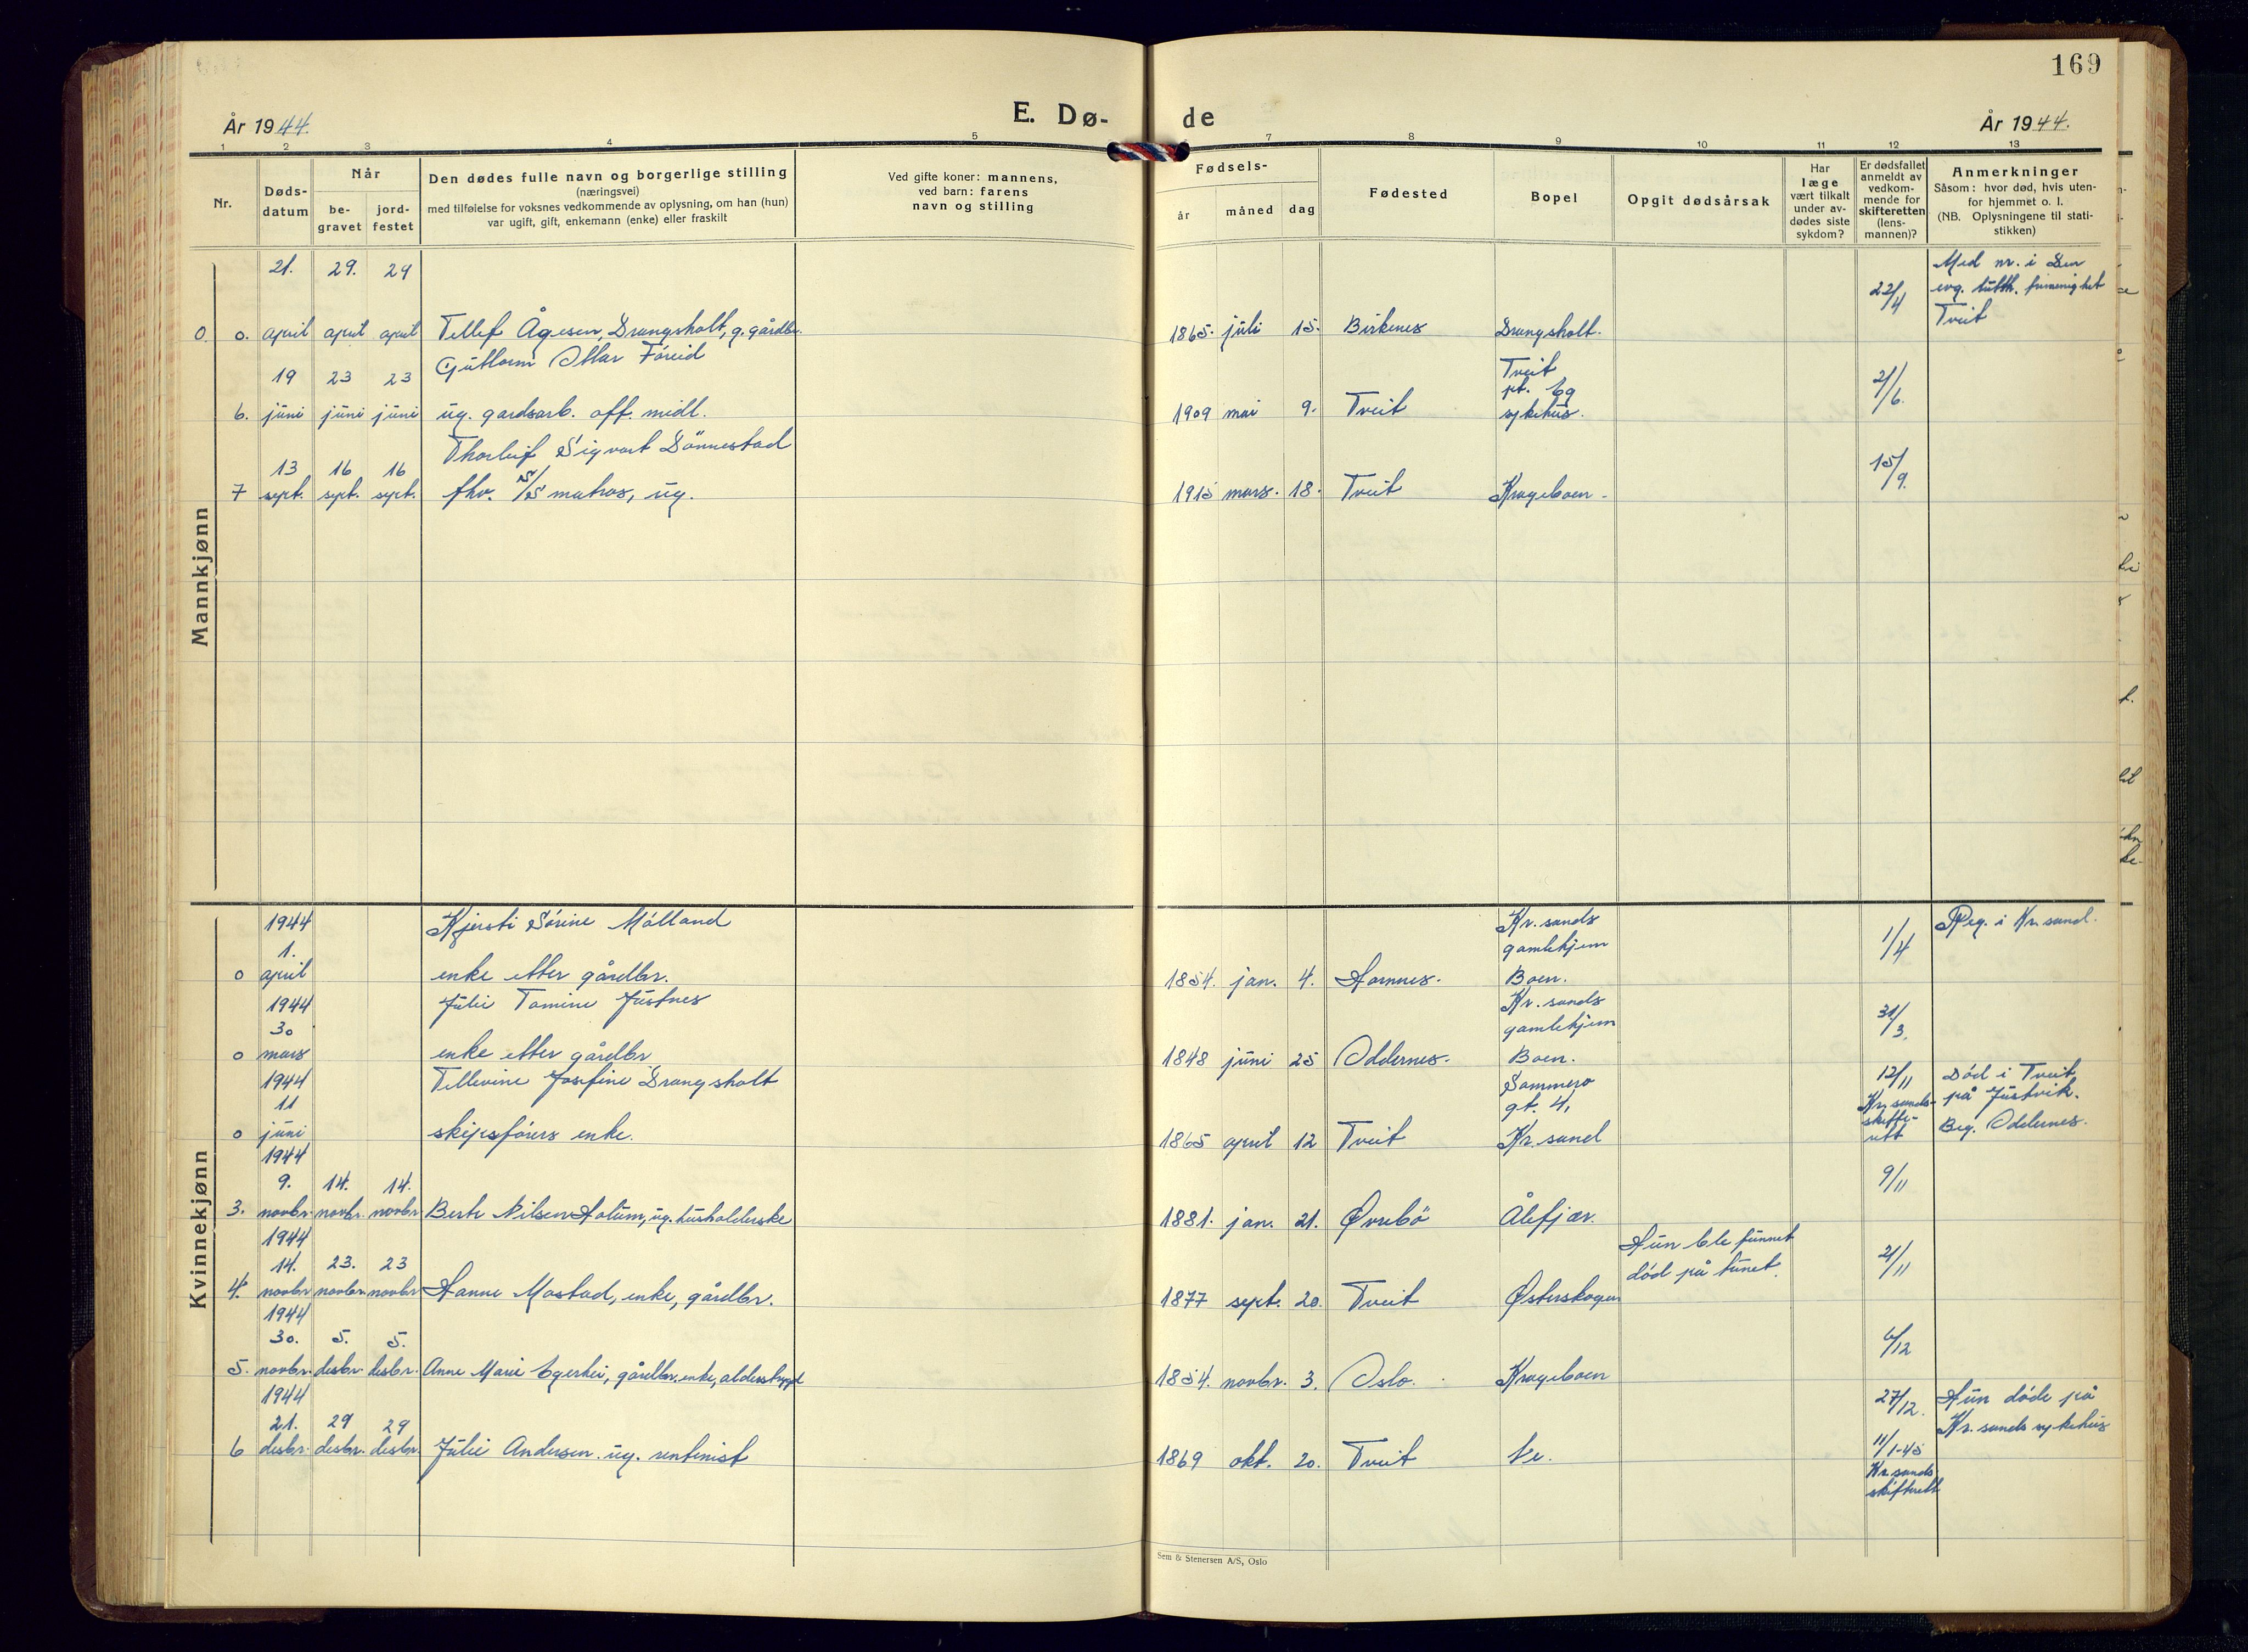 169
År 1944.
E. Dø-
de
År 1944.
1 2 3 4 5 7 8 9 10 11 12 13
Nr.
Døds-
datum
Når
be-
gravet
jord-
festet
Den dødes fulle navn og borgerlige stilling
(næringsvei)
med tilføielse for voksnes vedkommende av oplysning, om han (hun)
var ugift, gift, enkemann (enke) eller fraskilt
Ved gifte koner: mannens,
ved barn: farens
navn og stilling
Fødsels-
år
måned
dag
Fødested
Bopel
Opgit dødsårsak
Har
læge
vært tilkalt
under av-
dødes siste
sykdom?
Er dødsfallet
anmeldt av
vedkom-
mende for
skifteretten
(lens-
mannen)?
Anmerkninger
Såsom: hvor død, hvis uten-
for hjemmet o. l.
(NB. Oplysningene til stati-
stikken)
Mannkjønn
21. 29. 29
22/4
Med nr. i Den
evg. luth. frimenighet
Tveit
0 0. april april april Tellef Ågesen, Drangsholt, g. gårdbr.
1865. juli 15. Birkenes Drangsholt.
Guttorm Ottar Foreid
19 23 23
Tveit
pt. Eg
21/6
6. juni juni juni ug. gardsarb. off. midl.
1909 mai 9. Tveit sykehus.
Thorleif Sigvart Dönnestad
13 16 16
15/9.
7 sept. sept. sept. fhv. S/S matros, ug.
1915 mars. 18. Tveit Krageboen
Kvinnekjønn
1944 Kjersti Sörine Mölland
Kr. sands
Beg. i Kr. sand.
1.
gamlehjem
1/4
0 april enke etter gårdbr.
1854. jan. 4. Hamnes. Boen.
1944 Julie Tomine Justnes
Kr. sands
30
gamlehjem
31/3.
0 mars enke etter gårdbr
1848 juni 25 Oddernes. Boen.
1944 Tellevine Josefine Drangsholt
Sommero
12/11
Død i Tveit
11
gt. 4,
Kr. sands-
på Justvik.
skifte-
rett
0 juni skipsförers enke.
1865 april 12 Tveit Kr. sand
Beg. Oddernes.
1944
9. 14. 14.
9/11
3. novbr. novbr. novbr. Berte Nilsen Holum, ug. husholderske
1881. jan. 21. Øvrebö Ålefjær.
1944
14. 23. 23
Hun ble funnet
død på tunet.
21/11
4. novbr novbr. novbr Hanne Mostad, enke, gårdbr.
1877 sept. 20. Tveit Østerskogen
1944
30. 5. 5.
6/12
5. novbr. desbr. desbr. Anne Marie Egerhei, gårdbr. enke, alderstrygd
1854. novbr. 3. Oslo. Krageboen
1944
21. 29 29
27/12.
Hun døde på
Kr. sands sykehus
6 desbr. desbr. desbr. Julie Andersen. ug. rentenist
1869 okt. 20. Tveit Ve.
11/1-45
Kr. sands
skifterett
Sem & Stenersen A/S, Oslo